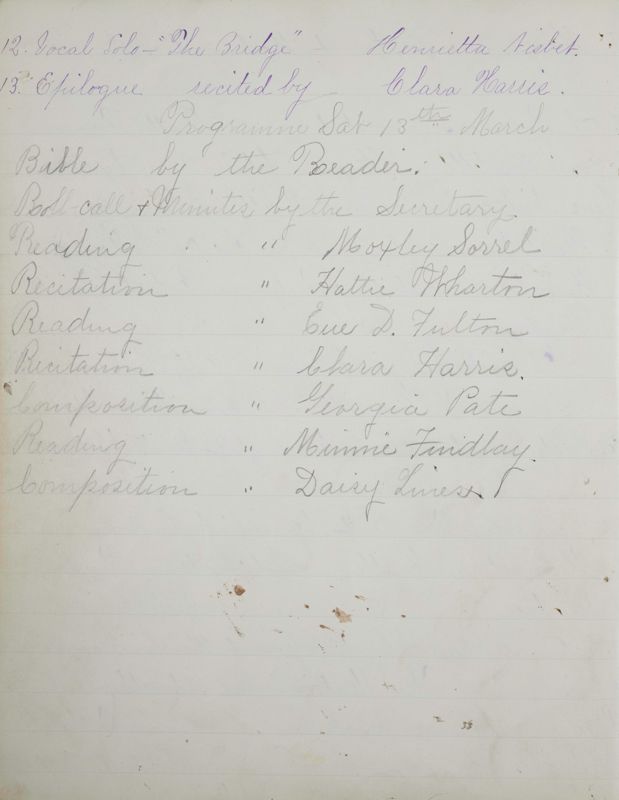 12. Vocal Solo - "The Bridge" - Henrietta Nisbet.
13. Epilogue recited by Clara Harris.
Programme Sat 13th March
Bible by the Reader.
Roll-call & Minutes by the Secretary.
Reading " Moxley Sorrel
Recitation " Hattie Wharton
Reading " Eve D. Fulton
Recitation " Clara Harris.
Composition " Georgia Pate
Reading " Minnie Findlay.
Composition " Daisy Lines.